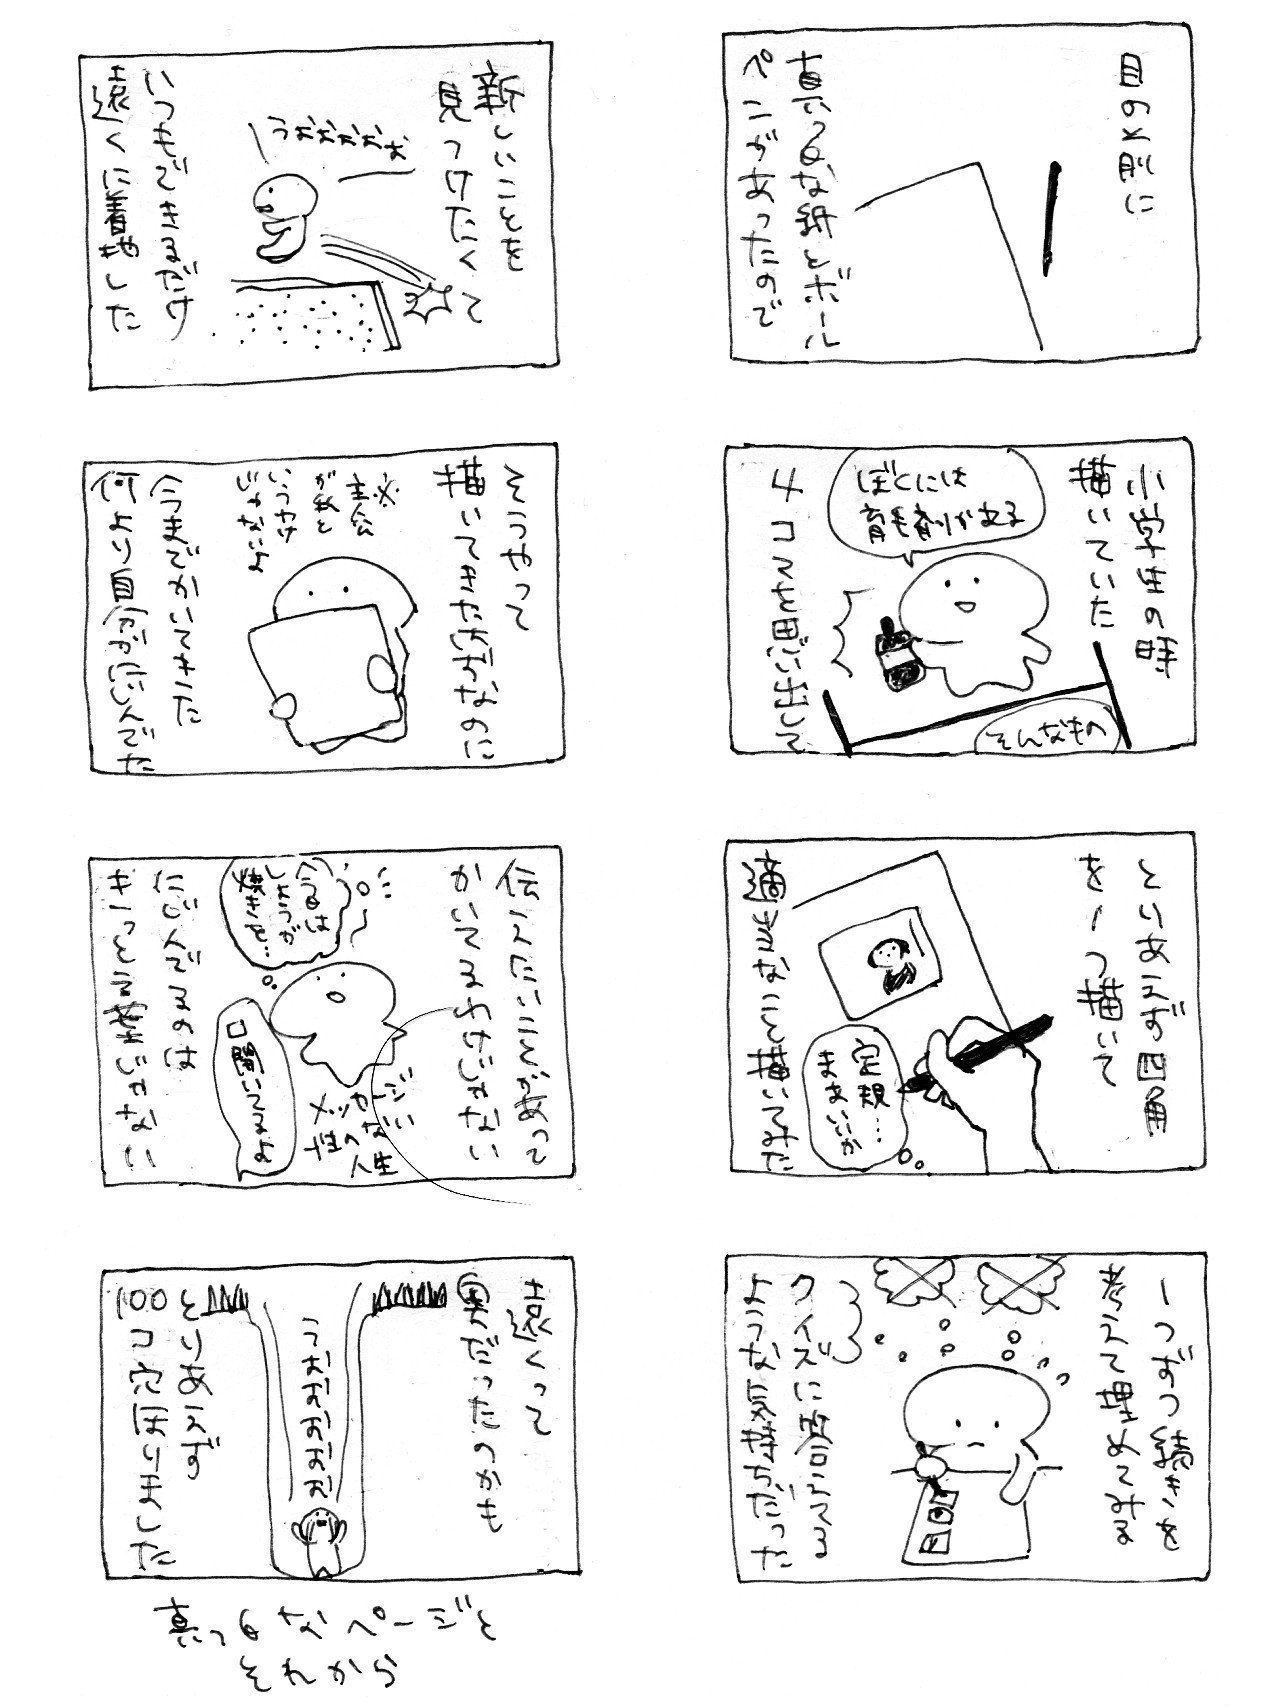 目の前に
真っ白な紙とボール
ペンがあったので
小学生の時
描いていた
ぼくには
育毛剤がある
そんなもの
4コマを思い出して
とりあえず四角
を一つ描いて
定規…
まあいいか
適当なこと描いてみた
一つずつ続きを
考えて埋めてみる
クイズに答えてる
ような気持ちだった
新しいことを
見つけたくて
うおおおおお
いつもできるだけ
遠くに着地した
そうやって
描いてきたはずなのに
※
主人公
が紙と
いうわけ
じゃないよ
今までかいてきた
何より自分がにじんでた
伝えたいことがあって
かいてるわけじゃない
今日は
しょうが
焼きを…
口開いてるよ
メッセージ
性のない
人生
にじんでるのは
きっとそうじゃない
遠くって
奥だったのかも
うおおおおお
とりあえず
100コ穴ほりました
真っ白なページと
それから